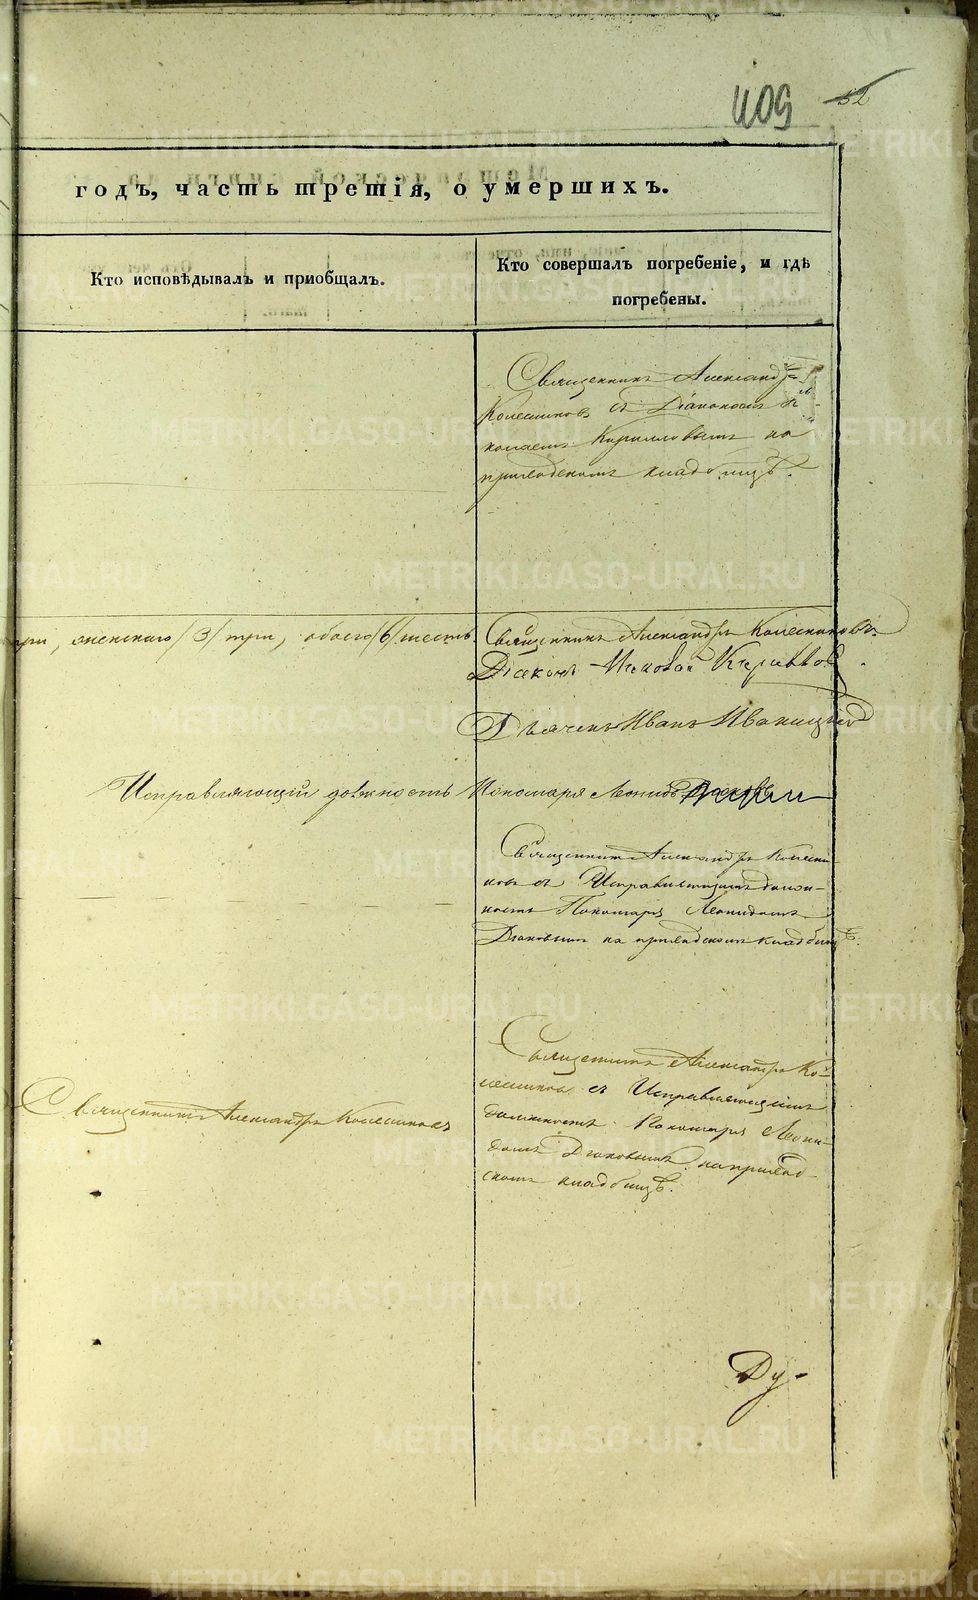 409 52
годъ, часть третія, о умершихъ.
Кто исповѣдывалъ и приобщалъ.
Кто совершалъ погребеніе, и гдѣ
погребены.
Священникъ Александръ
Колесниковъ съ Діакономъ Ни-
колаемъ Кирилловымъ на
приходскомъ кладбищѣ.
три, женскаго /3/ три, обоего /6/ шесть.
Священникъ Александръ Колесниковъ.
Діаконъ Николай Кирилловъ
Дьячекъ Иванъ Иваницкій
Исправляющій должность Пономаря Леонидъ
Священникъ Александръ Колесни-
ковъ съ Исправляющимъ долж-
ность Пономаря Леонидомъ
Дьяковымъ на приходскомъ кладбищѣ.
Священникъ Александръ Колесниковъ
Священникъ Александръ Ко-
лесниковъ съ Исправляющимъ
должность Пономаря Леони-
домъ Дьяковымъ на приход-
скомъ кладбищѣ.
Ду-
METRIKI.GASO-URAL.RU